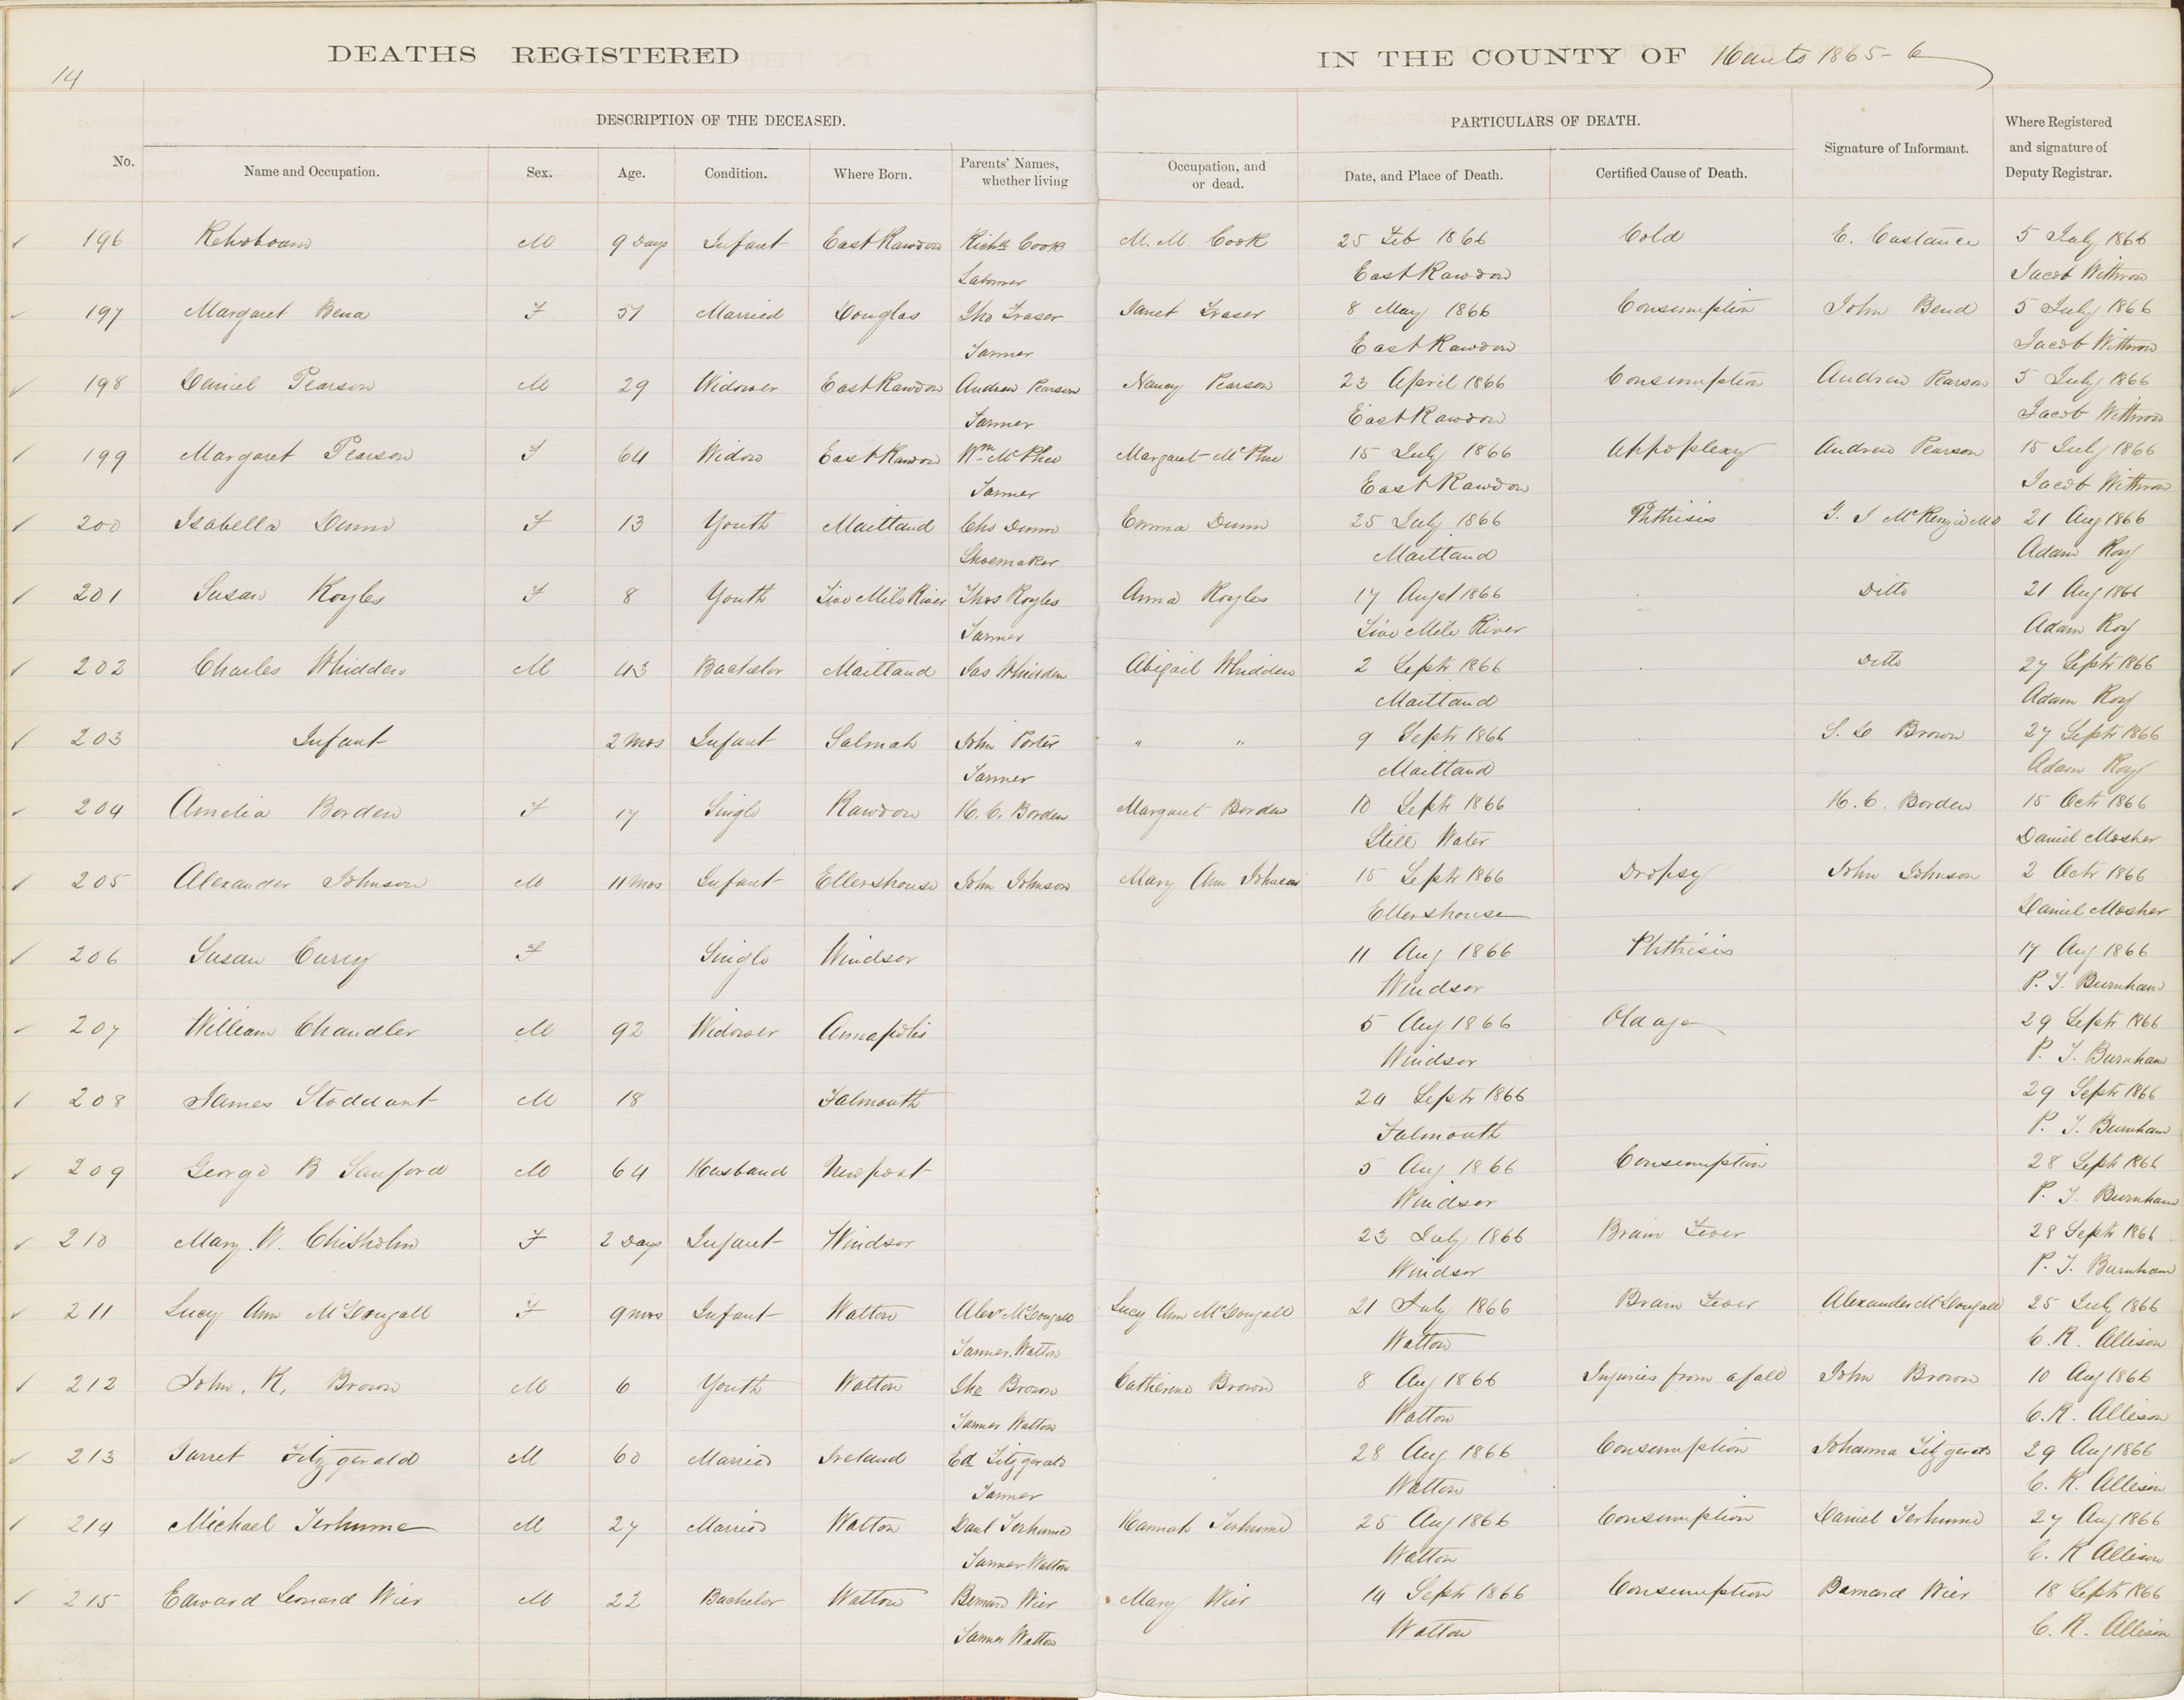 14
DEATHS REGISTERED IN THE COUNTY OF Hants 1865-6
DESCRIPTION OF THE DECEASED. PARTICULARS OF DEATH.
No. Name and Occupation. Sex. Age. Condition. Where Born. Parents' Names, whether living Occupation, and or dead. Date, and Place of Death. Certified Cause of Death. Signature of Informant. Where Registered and signature of Deputy Registrar.
196 Rehoboam M 9 Days Infant East Rawdon Richd Cook M. M. Cook 25 Feb 1866 Cold E. Custance 5 July 1866
Labourer East Rawdon Jacob Withrow
197 Margaret Bend F 51 Married Douglas Jho Fraser Janet Fraser 8 May 1866 Consumption John Bend 5 July 1866
Farmer East Rawdon Jacob Withrow
198 Daniel Pearson M 29 Widower East Rawdon Andrew Pearson Nancy Pearson 23 April 1866 Consumption Andrew Pearson 5 July 1866
Farmer East Rawdon Jacob Withrow
199 Margaret Pearson F 64 Widow East Rawdon Wm McPhee Margaret McPhee 15 July 1866 Appoplexy Andrew Pearson 15 July 1866
Farmer East Rawdon Jacob Withrow
200 Isabella Dunn F 13 Youth Maitland Chs Dunn Emma Dunn 25 July 1866 Phthisis McKenzie MD 21 Aug 1866
Shoemaker Maitland Adam Roy
201 Susan Royles F 8 Youth Five Mile River Thos Royles Anna Royles 17 Augst 1866 Ditto 21 Aug 1866
Farmer Five Mile River Adam Roy
202 Charles Whidden M 43 Bachelor Maitland Jas Whidden Abigail Whidden 2 Septr 1866 Ditto 27 Septr 1866
Maitland Adam Roy
203 Infant 2 mos Infant Salmah John Porter " " 9 Septr 1866 S. D Brown 27 Septr 1866
Farmer Maitland Adam Roy
204 Amelia Borden F 17 Single Rawdon H. C. Borden Margaret Borden 10 Septr 1866 H. C. Borden 15 Octr 1866
Still Water Daniel Mosher
205 Alexander Johnson M 11 mos Infant Ellershouse John Johnson Mary Ann Johnson 15 Septr 1866 Dropsy John Johnson 2 Octr 1866
Ellershouse Daniel Mosher
206 Susan Curry F Single Windsor 11 Aug 1866 Phthisis 17 Aug 1866
Windsor P. J. Burnham
207 William Chandler M 92 Widower Annapolis 5 Aug 1866 Old age 29 Septr 1866
Windsor P. J. Burnham
208 James Stoddart M 18 Falmouth 24 Septr 1866 29 Septr 1866
Falmouth P. J. Burnham
209 George B Sanford M 64 Husband Newport 5 Aug 1866 Consumption 28 Septr 1866
Windsor P. J. Burnham
210 Mary. W. Chisholm F 2 Days Infant Windsor 23 July 1866 Brain Fever 28 Septr 1866
Windsor P. J. Burnham
211 Lucy Ann McDougall F 9 mos Infant Walton Alexr McDougall Lucy Ann McDougall 21 July 1866 Brain Fever Alexander McDougall 25 July 1866
Farmer. Walton Walton C. R. Allison
212 John. K. Brown M 6 Youth Walton Jho Brown Catherine Brown 8 Aug 1866 Injuries from a fall John Brown 10 Aug 1866
Farmer Walton Walton C. R. Allison
213 Garret Fitzgerald M 60 Married Ireland Ed Fitzgerald 28 Aug 1866 Consumption Johanna Fitzgerald 29 Aug 1866
Farmer Walton C. R. Allison
214 Michael Terhume M 27 Married Walton Danl Terhume Hannah Terhume 25 Aug 1866 Consumption Daniel Terhume 27 Aug 1866
Farmer Walton Walton C. R Allison
215 Edward Leonard Wier M 22 Bachelor Walton Bernard Wier Mary Wier 14 Septr 1866 Consumption Barnard Wier 18 Septr 1866
Farmer Walton Walton C. R. Allison